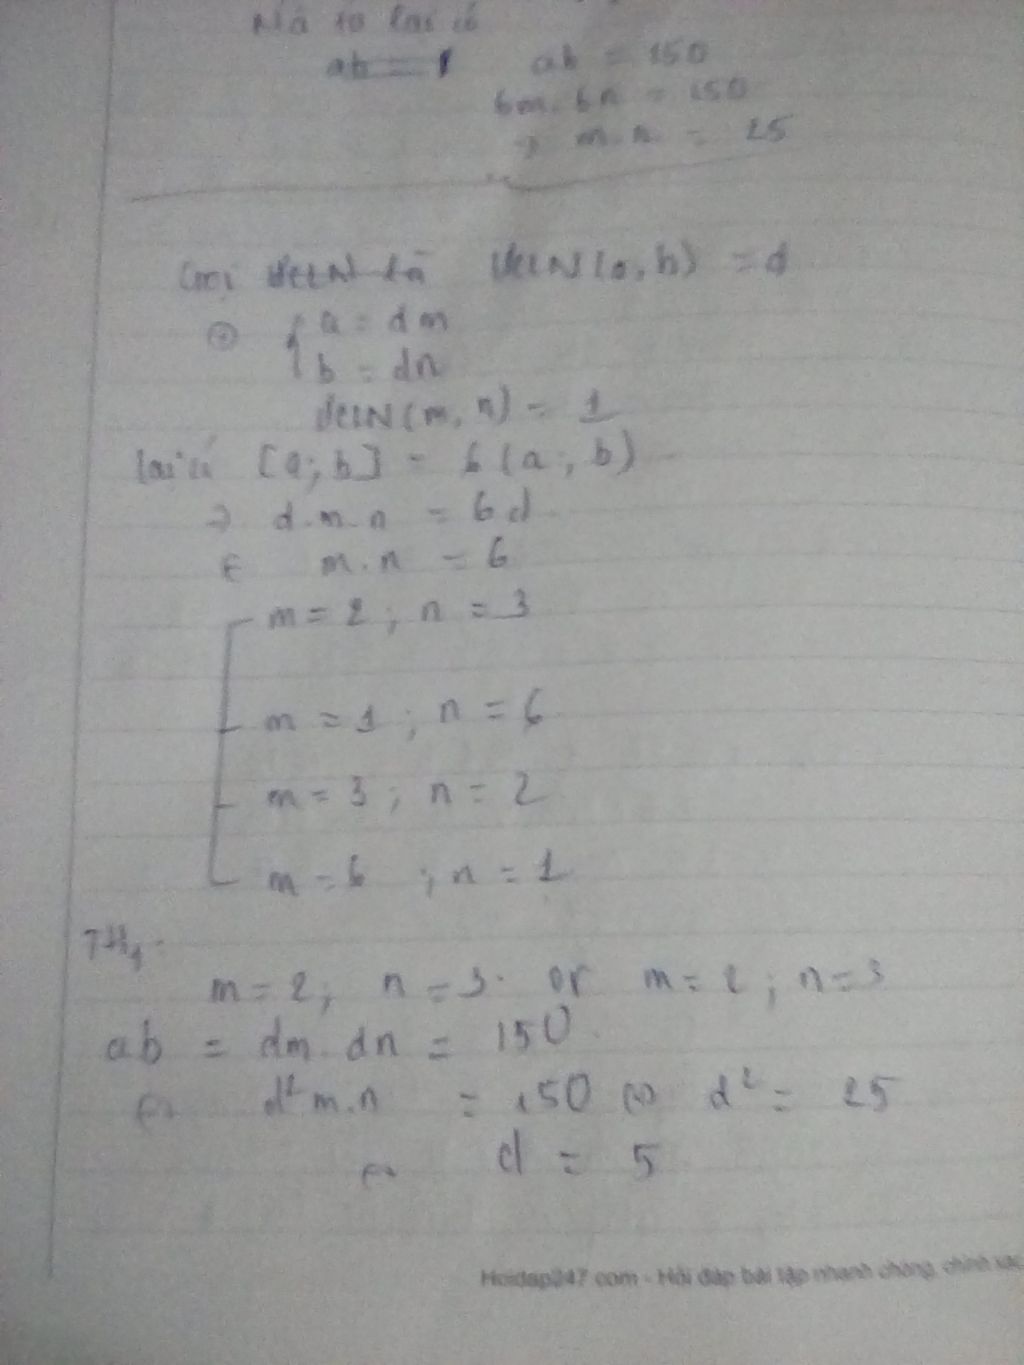 Mà ta lại có
ab = 1 ab = 150
6m. 6n = 150
→ m.n = 25
Gọi ƯCLN là ƯCLN(a,b) = d
a = dm
b = dn
ƯCLN(m, n) = 1
lại có [a; b] = 6(a;, b)
=> d.m.n = 6d
m.n = 6
m = 2; n = 3
m = 1; n = 6
m = 3; n = 2
m = 6; n = 1
TH1.
m = 2; n = 3. or m = 2; n = 3
ab = dm. dn = 150.
⇔ d² m.n = 150 ⇔ d² = 25
⇔ d = 5
Hoidap247.com - Hỏi đáp bài tập nhanh chóng, chính xác